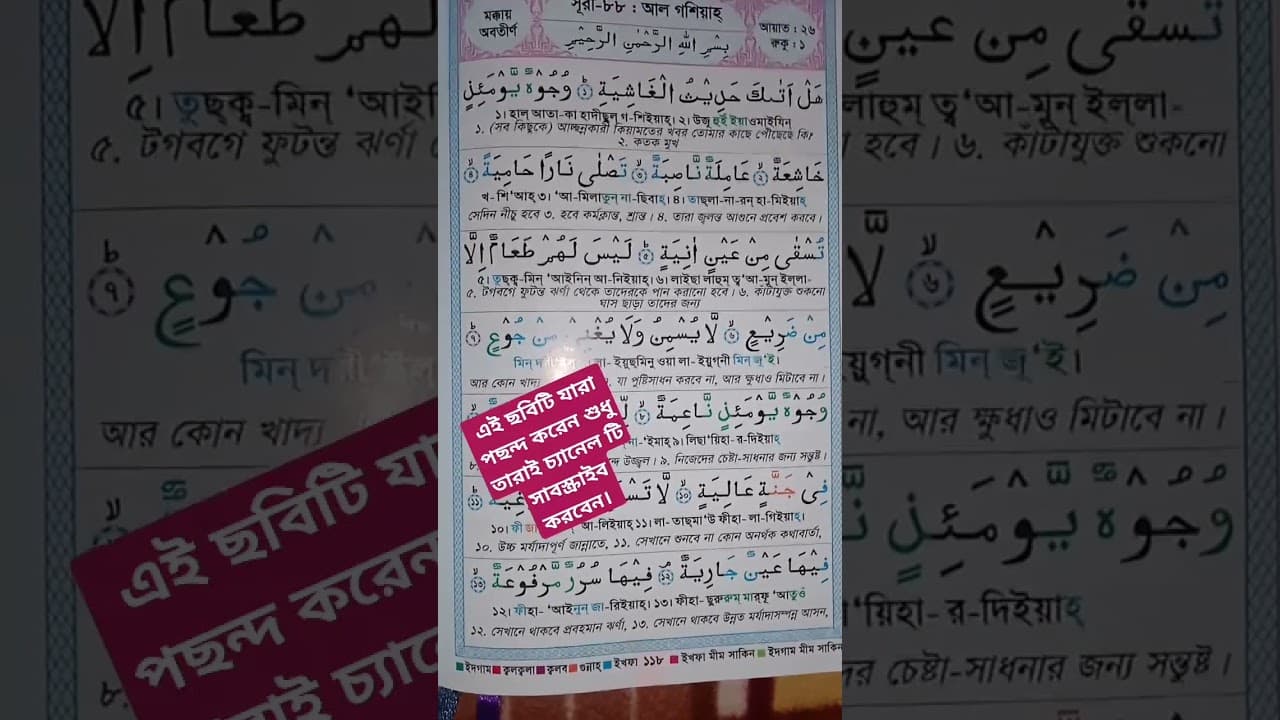 সূরা-৮৮ : আল গশিয়াহ্
মক্কায়
অবতীর্ণ
আয়াত : ২৬
রুকূ : ১
بِسْمِ اللهِ الرَّحْمٰنِ الرَّحِيْمِ
هَلْ اَتٰىكَ حَدِيْثُ الْغَاشِيَةِ ۝ وُجُوْهٌ يَّوْمَئِذٍ
১। হাল্ আতা-কা হাদীছুল্ গ-শিইয়াহ্। ২। উজূ হুই ইয়াওমাইযিন্
১. (সব কিছুকে) আচ্ছন্নকারী কিয়ামতের খবর তোমার কাছে পৌছেছে কি?
২. কতক মুখ
خَاشِعَةٌ ۝ عَامِلَةٌ نَّاصِبَةٌ ۝ تَصْلٰى نَارًا حَامِيَةً ۝
খ-শি‘আহ্ ৩। ‘আ-মিলাতুন্ না-ছিবাহ্। ৪। তাছলা-না-রন্ হা-মিইয়াহ্
সেদিন নীচু হবে ৩. হবে কর্মক্লান্ত, শ্রান্ত। ৪. তারা জ্বলন্ত আগুনে প্রবেশ করবে।
تُسْقٰى مِنْ عَيْنٍ اٰنِيَةٍ ۝ لَيْسَ لَهُمْ طَعَامٌ اِلَّا
৫। তুছক্ব-মিন্ ‘আইনিন্ আ-নিইয়াহ্। ৬। লাইছা লাহুম্ ত্ব‘আ-মুন্ ইল্লা-
৫. টগবগে ফুটন্ত ঝর্ণা থেকে তাদেরকে পান করানো হবে। ৬. কাঁটাযুক্ত শুকনো
ঘাস ছাড়া তাদের জন্য
مِنْ ضَرِيْعٍ ۝ لَّا يُسْمِنُ وَلَا يُغْنِيْ مِنْ جُوْعٍ ۝
মিন্ দ ইয়ুছমিনু ওয়া লা- ইয়ুগ্নী মিন্ জূ‘ই।
আর কোন খাদ্য যা পুষ্টিসাধন করবে না, আর ক্ষুধাও মিটাবে না।
وُجُوْهٌ يَّوْمَئِذٍ نَّاعِمَةٌ ۝
‘ইমাহ্ ৯। লিছা‘য়িহা- র-দিইয়াহ্
উজ্জ্বল। ৯. নিজেদের চেষ্টা-সাধনার জন্য সন্তুষ্ট।
فِيْ جَنَّةٍ عَالِيَةٍ ۝ لَّا
১০। ফী আ-লিইয়াহ্ ১১। লা- তাছমা‘উ ফীহা- লা-গিইয়াহ্।
১০. উচ্চ মর্যাদাপূর্ণ জান্নাতে, ১১. সেখানে শুনবে না কোন অনর্থক কথাবার্তা,
فِيْهَا عَيْنٌ جَارِيَةٌ ۝ فِيْهَا سُرُرٌ مَّرْفُوْعَةٌ ۝
১২। ফীহা- ‘আইনুন্ জা-রিইয়াহ্। ১৩। ফীহা- ছুরুরুম্ মারফূ ‘আতুওঁ
১২. সেখানে থাকবে প্রবহমান ঝর্ণা, ১৩. সেখানে থাকবে উন্নত মর্যাদাসম্পন্ন আসন,
ইদগাম ক্বলক্বলা ক্বলব গুন্নাহ্ ইখফা ১১৮ ইখফা মীম সাকিন ইদগাম মীম সাকিন
এই ছবিটি যারা
পছন্দ করেন শুধু
তারাই চ্যানেল টি
সাবস্ক্রাইব
করবেন।